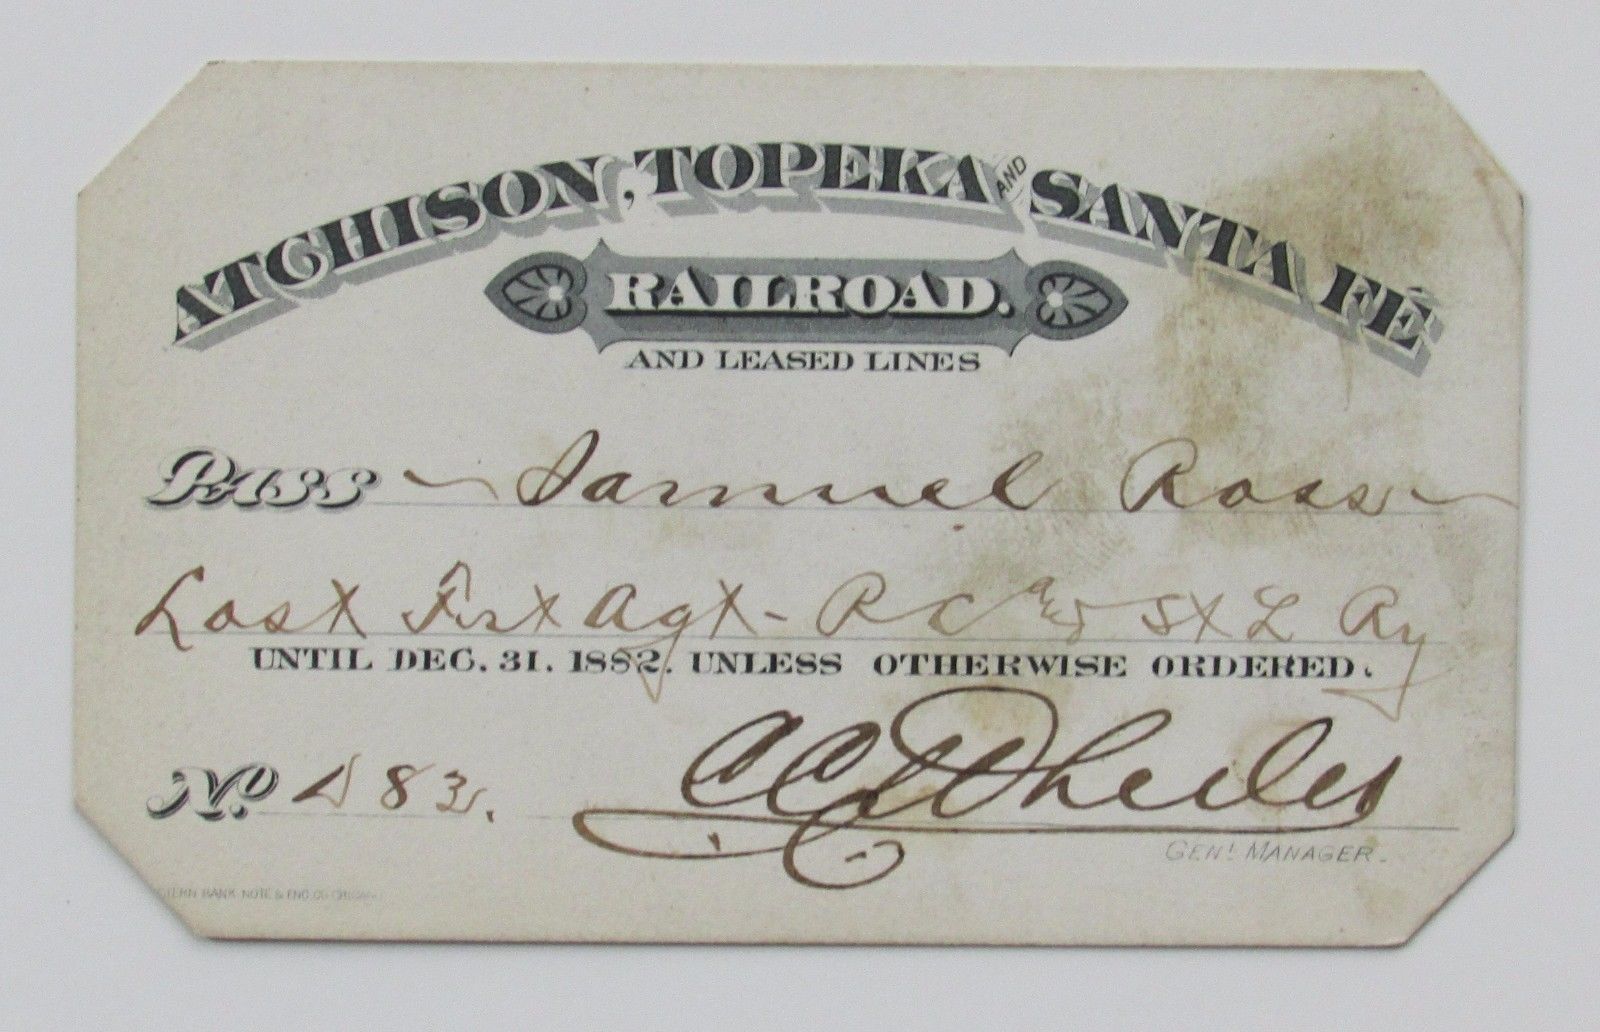 ATCHISON, TOPEKA AND SANTA FÉ
RAILROAD.
AND LEASED LINES
Pass Samuel Ross
Lost Frt Agt - R C & St L Ry
UNTIL DEC. 31. 1882. UNLESS OTHERWISE ORDERED.
No. 83.
CC Wheeler
GEN'L MANAGER.
BANK NOTE & ENG. CO. CHICAGO